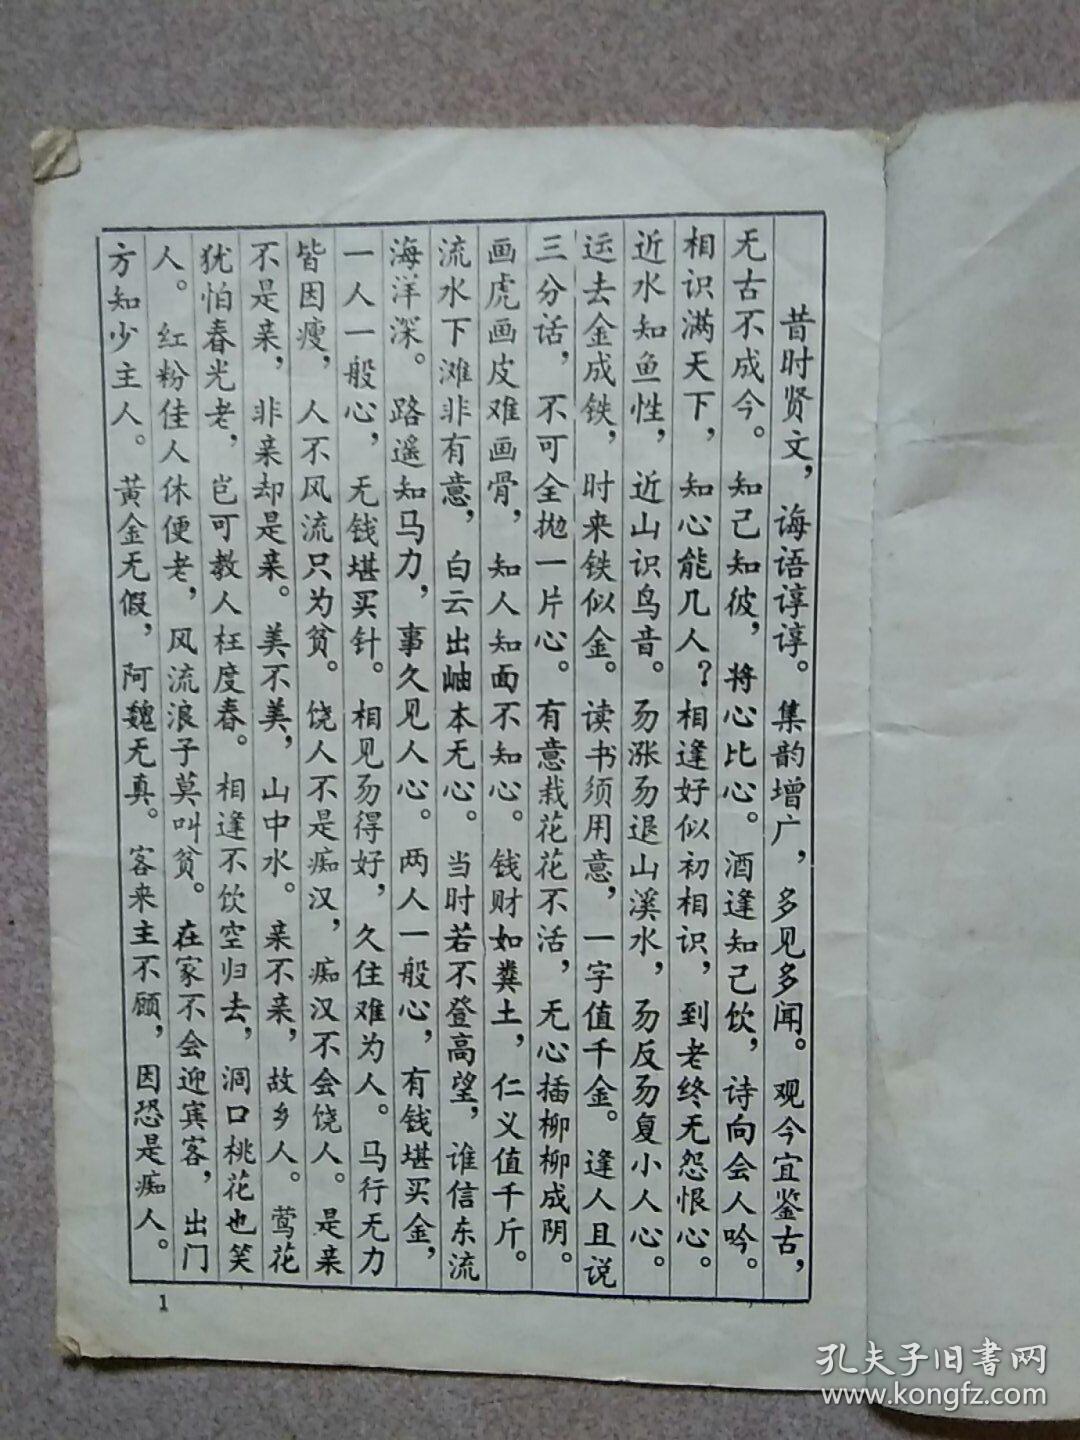 昔时贤文，诲语谆谆。集韵增广，多见多闻。观今宜鉴古，
无古不成今。知己知彼，将心比心。酒逢知己饮，诗向会人吟。
相识满天下，知心能几人？相逢好似初相识，到老终无怨恨心。
近水知鱼性，近山识鸟音。易涨易退山溪水，易反易复小人心。
运去金成铁，时来铁似金。读书须用意，一字值千金。逢人且说
三分话，不可全抛一片心。有意栽花花不活，无心插柳柳成阴。
画虎画皮难画骨，知人知面不知心。钱财如粪土，仁义值千斤。
流水下滩非有意，白云出岫本无心。当时若不登高望，谁信东流
海洋深。路遥知马力，事久见人心。两人一般心，有钱堪买金，
一人一般心，无钱堪买针。相见易得好，久住难为人。马行无力
皆因瘦，人不风流只为贫。饶人不是痴汉，痴汉不会饶人。是亲
不是亲，非亲却是亲。美不美，山中水。亲不亲，故乡人。莺花
犹怕春光老，岂可教人枉度春。相逢不饮空归去，洞口桃花也笑
人。红粉佳人休便老，风流浪子莫叫贫。在家不会迎宾客，出门
方知少主人。黄金无假，阿魏无真。客来主不顾，因恐是痴人。
1
孔夫子旧书网
www.kongfz.com